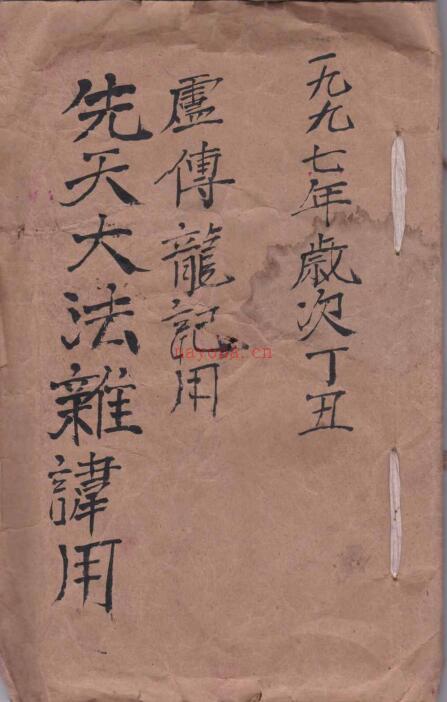 一九九七年歲次丁丑
盧傳龍記用
先天大法雜諱用